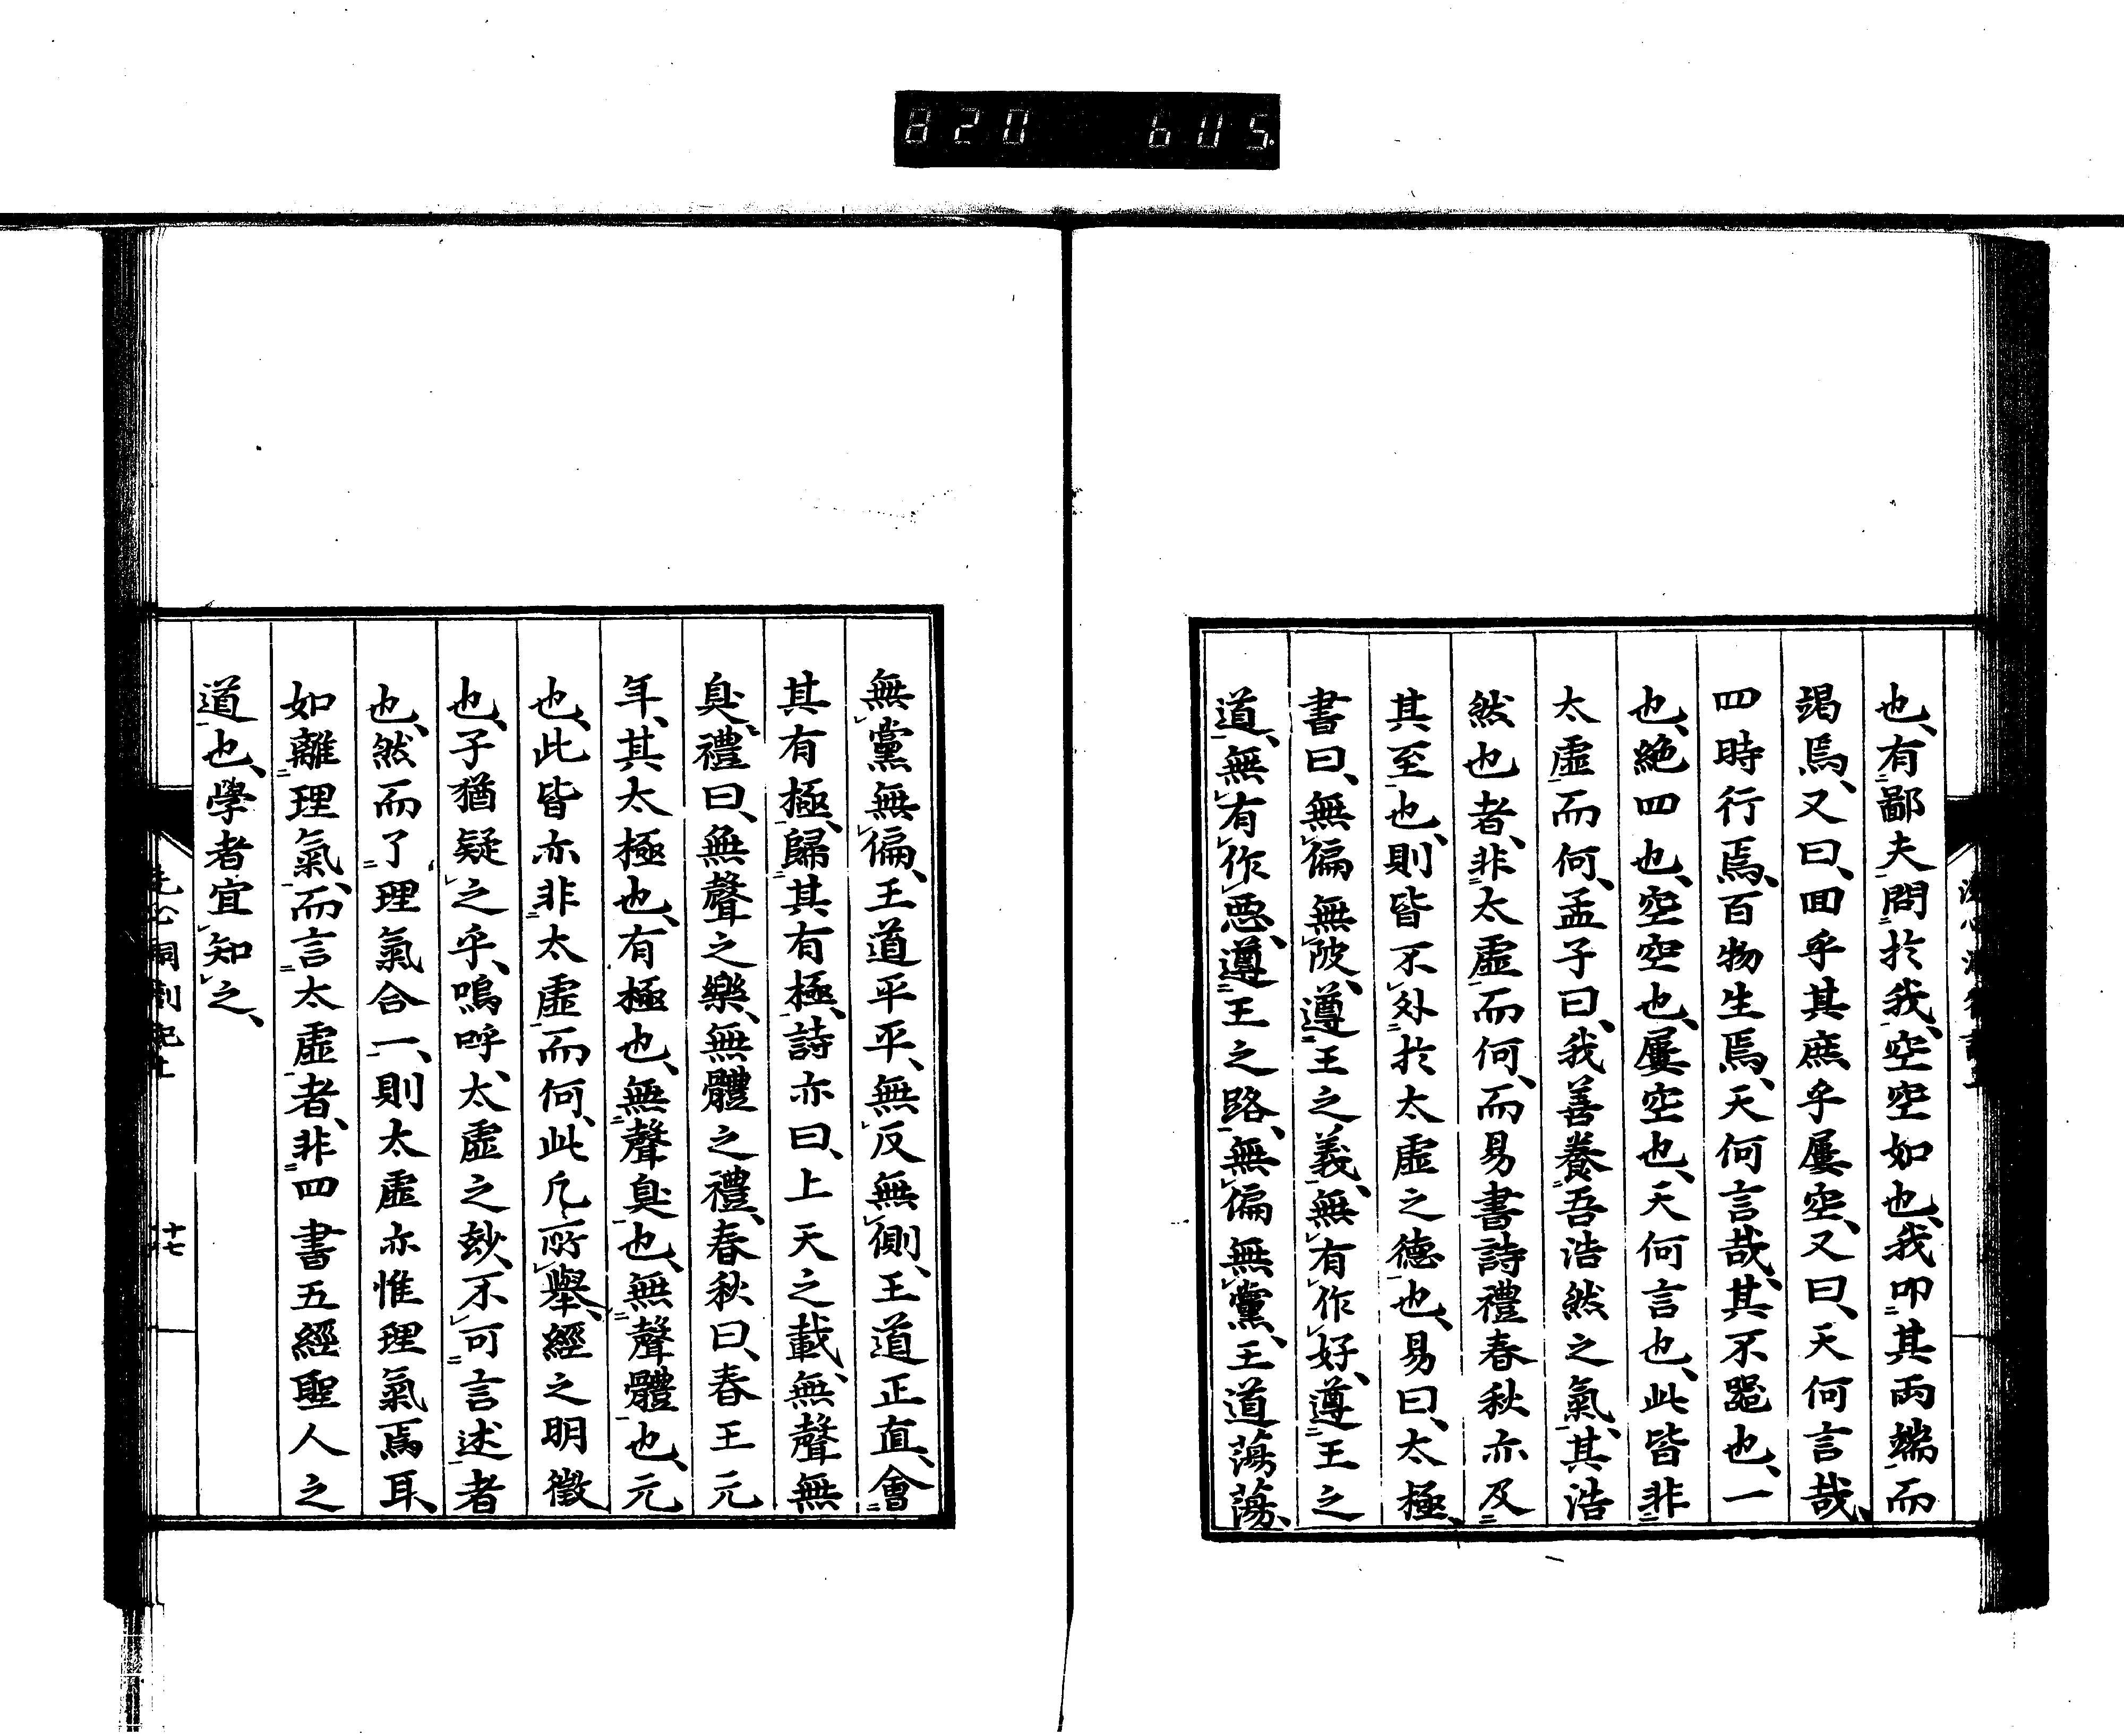 820 605
也、有鄙夫問於我、空空如也、我叩其兩端而
竭焉、又曰、回乎其庶乎屢空、又曰、天何言哉、
四時行焉、百物生焉、天何言哉、其不器也、一
也、絶四也、空空也、屢空也、天何言也、此皆非
太虛而何、孟子曰、我善養吾浩然之氣、其浩
然也者、非太虛而何、而易書詩禮春秋亦及
其至也、則皆不外於太虛之德也、易曰、太極、
書曰、無偏無陂、遵王之義、無有作好、遵王之
道、無有作惡、遵王之路、無偏無黨、王道蕩蕩、
無黨無偏、王道平平、無反無側、王道正直、會
其有極、歸其有極、詩亦曰、上天之載、無聲無
臭、禮曰、無聲之樂、無體之禮、春秋曰、春王元
年、其太極也、有極也、無聲臭也、無聲體也、元
也、此皆亦非太虛而何、此凡所舉、經之明徵
也、子猶疑之乎、嗚呼、太虛之玅、不可言述者
也、然而了理氣合一、則太虛亦惟理氣焉耳、
如離理氣、而言太虛者、非四書五經聖人之
道也、學者宜知之、
十七